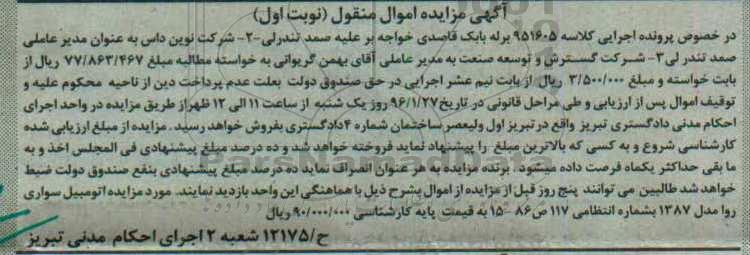 آگهی مزایده اموال منقول (نوبت اول)
در خصوص پرونده اجرایی کلاسه ۹۵۱۶۰۵ برله بابک قاصدی خواجه بر علیه صمد تندرلی-۲- شرکت نوین داس به عنوان مدیر عاملی
صمد تندر لی۳- شرکت گسترش و توسعه صنعت به مدیر عاملی آقای بهمن گریوانی به خواسته مطالبه مبلغ ۷۷/۸۶۳/۴۶۷ ریال از
بابت خواسته و مبلغ ۳/۵۰۰/۰۰۰ ریال از بابت نیم عشر اجرایی در حق صندوق دولت بعلت عدم پرداخت دین از ناحیه محکوم علیه و
توقیف اموال پس از ارزیابی و طی مراحل قانونی در تاریخ ۹۶/۱/۲۷ روز یک شنبه از ساعت ۱۱ الی ۱۲ ظهر از طریق مزایده در واحد اجرای
احکام مدنی دادگستری تبریز واقع در تبریز اول ولیعصر ساختمان شماره ۴ دادگستری بفروش خواهد رسید. مزایده از مبلغ ارزیابی شده
کارشناسی شروع و به کسی که بالاترین مبلغ را پیشنهاد نماید فروخته خواهد شد و ده درصد مبلغ پیشنهادی فی المجلس اخذ و به
ما بقی حداکثر یکماه فرصت داده میشود. برنده مزایده به هر عنوان انصراف نماید ده درصد مبلغ پیشنهادی بنفع صندوق دولت ضبط
خواهد شد طالبین می توانند پنج روز قبل از مزایده از اموال بشرح ذیل با هماهنگی این واحد بازدید نمایند. مورد مزایده اتومبیل سواری
روا مدل ۱۳۸۷ بشماره انتظامی ۱۱۷ ص ۸۶ -۱۵ به قیمت پایه کارشناسی ۹۰/۰۰۰/۰۰۰ ریال
ح/۱۲۱۷۵ شعبه ۲ اجرای احکام مدنی تبریز
ParsNamadData